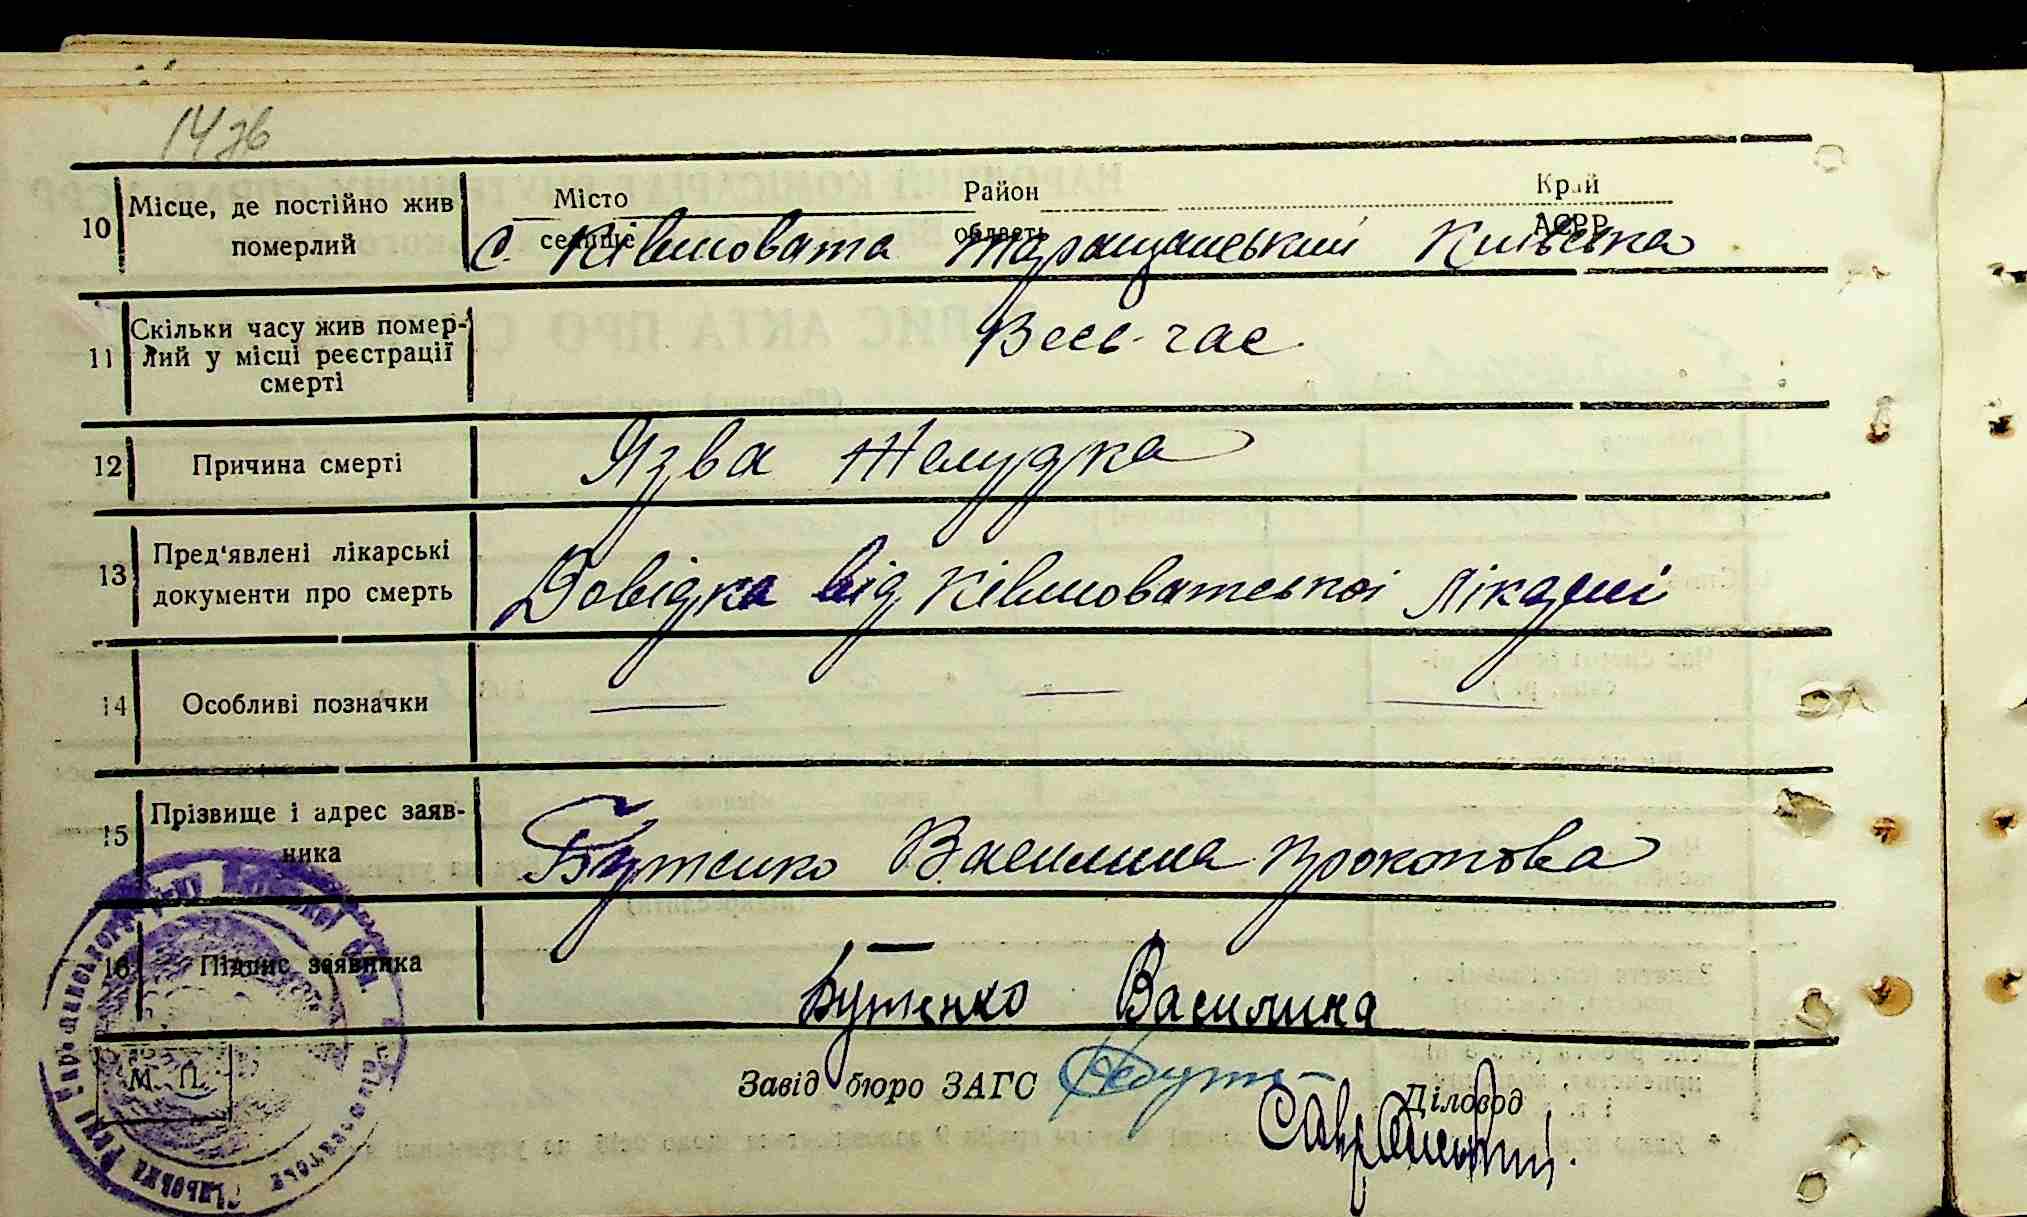 14зв
10 Місце, де постійно жив померлий
Місто Район Край
селище область АСРР
с. Ківшовата Таращанський Київська
11 Скільки часу жив помер-
лий у місці реєстрації
смерті
Весь-час.
12 Причина смерті Язва Желудка
13 Пред'явлені лікарські
документи про смерть
Довідка від Ківшоватської лікарні
14 Особливі позначки — — —
15 Прізвище і адрес заяв-
ника
Бутенко Василина Прокопова
16 Підпис заявника
Бутенко Василина
М. П.
Завід бюро ЗАГС
Діловод